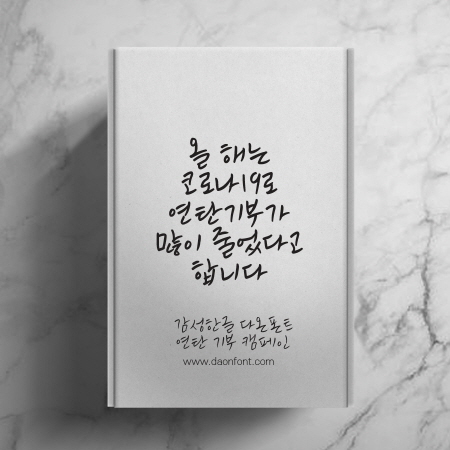 올 해는
코로나19로
연탄기부가
많이 줄었다고
합니다
감성한글 다온폰트
연탄 기부 캠페인
www.daonfont.com